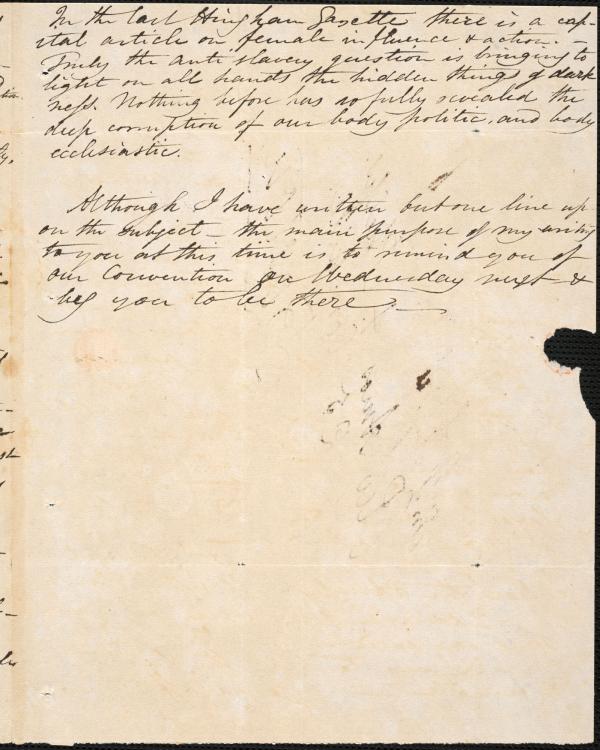 In the last Hingham Gazette there is a cap-
ital article on female influence & action. –
Truly the anti slavery question is bringing to
light on all hands the hidden things of dark
ness. Nothing before has so fully revealed the
deep corruption of our body politic, and body
ecclesiastic.
Although I have written but one line up
on the subject – the main purpose of my writing
to you at this time is to remind you of
our Convention on Wednesday next &
beg you to be there –